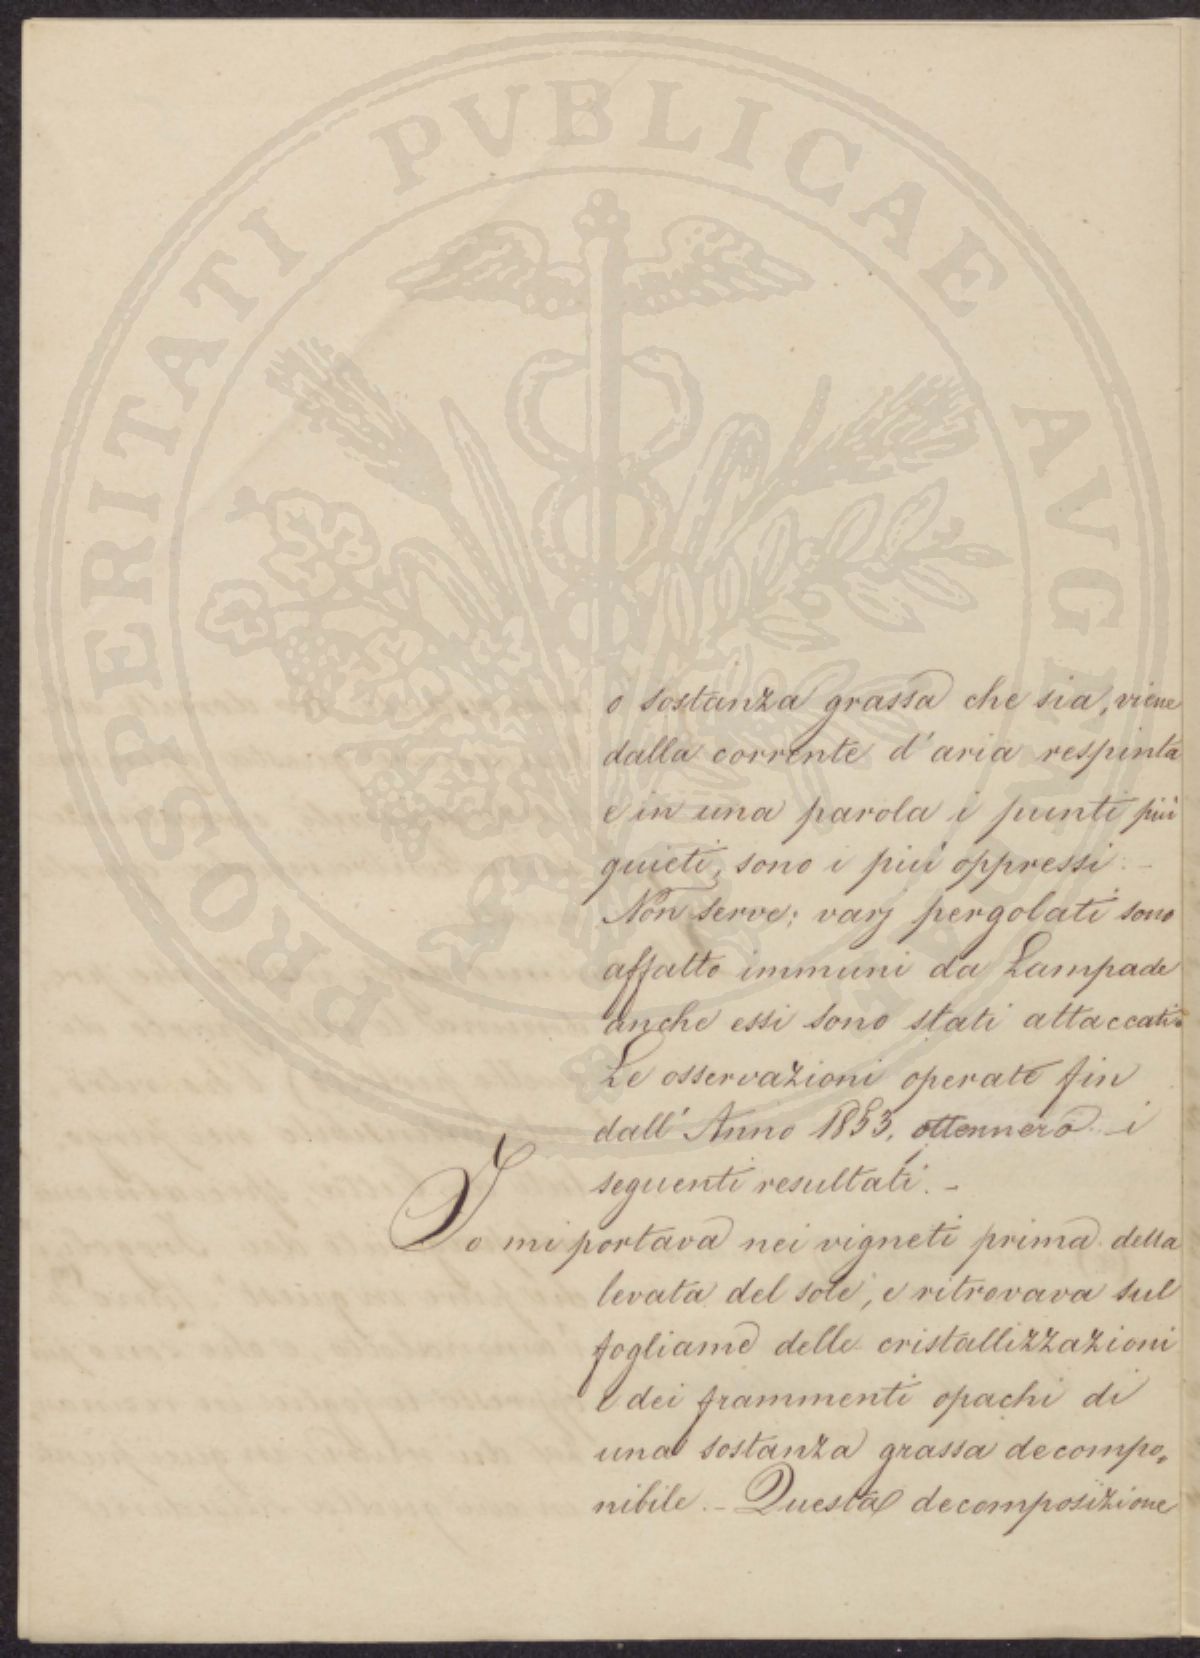 PROSPERITATI PVBLICAE AVGENDAE
o sostanza grassa che sia, viene
dalla corrente d'aria respinta
e in una parola i punti più
quieti, sono i più oppressi. -
Non serve; varj pergolati sono
affatto immuni da Lampade
anche essi sono stati attaccati.
Le osservazioni operate fin
dall'Anno 1853, ottennero i
seguenti resultati. -
Io mi portava nei vigneti prima della
levata del sole, e ritrovava sul
fogliame delle cristallizzazioni
e dei frammenti opachi di
una sostanza grassa decompo„
nibile. - Questa decomposizione